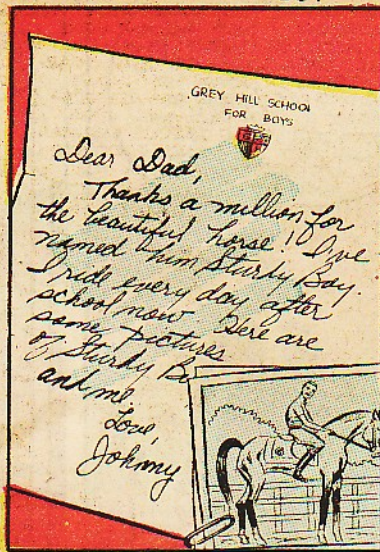 GREY HILL SCHOOL
FOR BOYS
Dear Dad,
Thanks a million for
the beautiful horse! I've
named him Sturdy Boy.
I ride every day after
school now. Here are
some pictures
of Sturdy Bo
and me.
Love,
Johnny